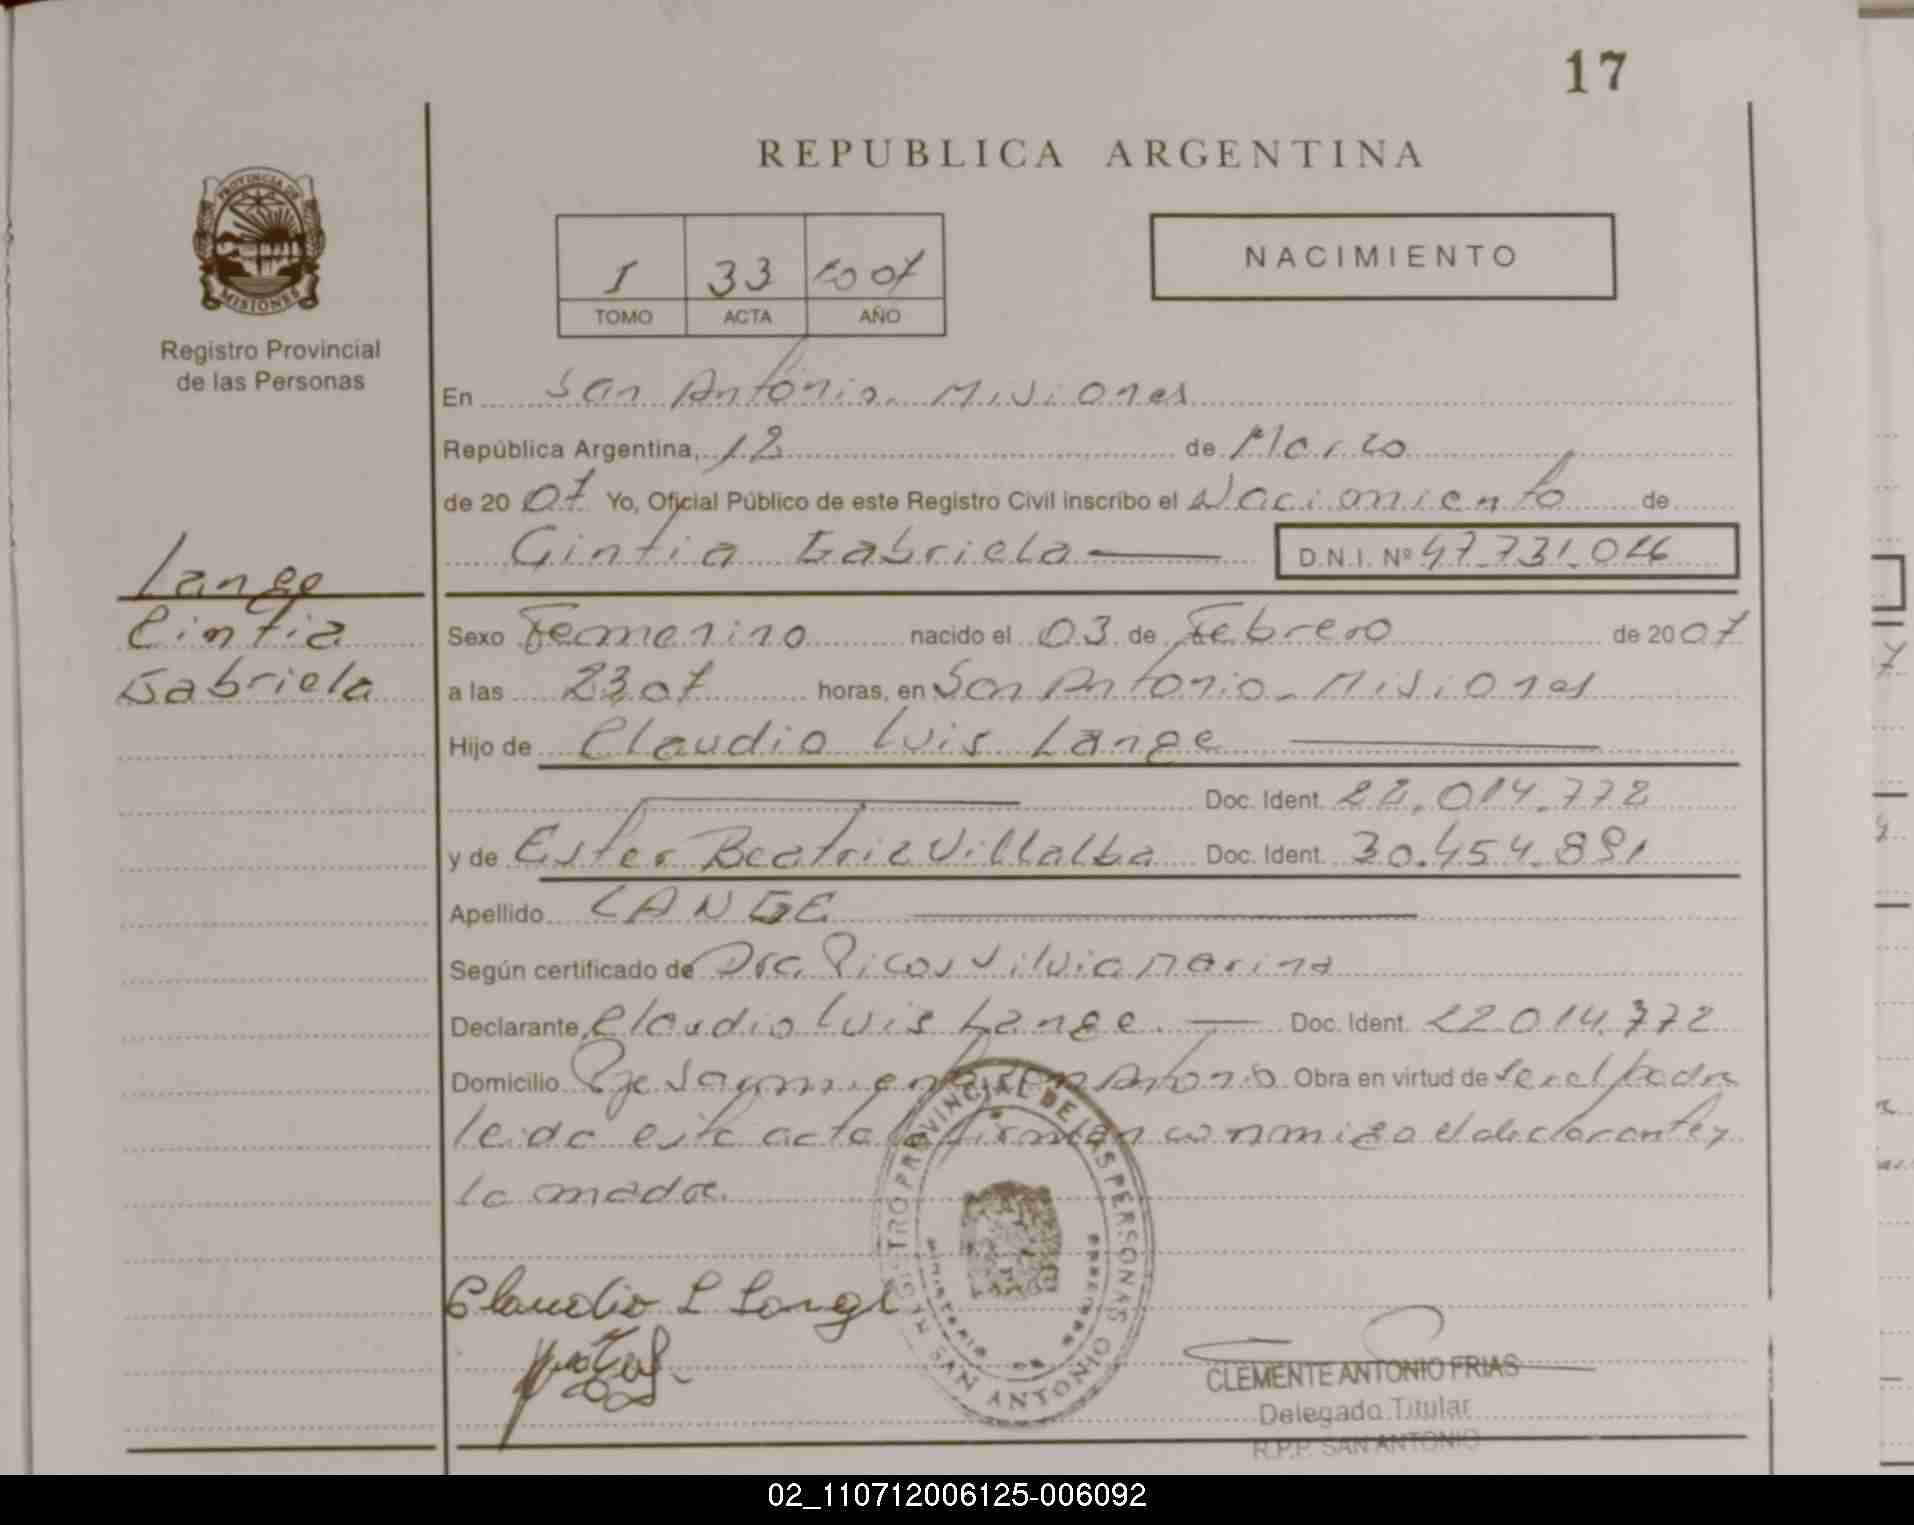 17
REPUBLICA ARGENTINA
PROVINCIA DE
MISIONES
Registro Provincial
de las Personas
I 33 2007
TOMO ACTA AÑO
NACIMIENTO
En San Antonio. Misiones
República Argentina, 12 de Marzo
de 2007 Yo, Oficial Público de este Registro Civil inscribo el Nacimiento de
Cintia Gabriela D.N.I. Nº 47.731.046
Lange
Cintia
Gabriela
Sexo Femenino nacido el 03 de Febrero de 2007
a las 23 07 horas, en San Antonio - Misiones
Hijo de Claudio Luis Lange
Doc. Ident. 22.014.772
y de Ester Beatriz Villalba Doc. Ident. 30.454.891
Apellido LANGE
Según certificado de Dra. Picos Silvia Marina
Declarante Claudio Luis Lange. Doc. Ident. 22.014.772
Domicilio Pje Sarmiento San Antonio Obra en virtud de ser el padre
leida esta acta firman conmigo el declarante y
la madre.
REGISTRO PROVINCIAL DE LAS PERSONAS
MINISTERIO DE GOBIERNO
SAN ANTONIO
Claudio L Lange
CLEMENTE ANTONIO FRIAS
Delegado Titular
R.P.P. SAN ANTONIO
02_110712006125-006092